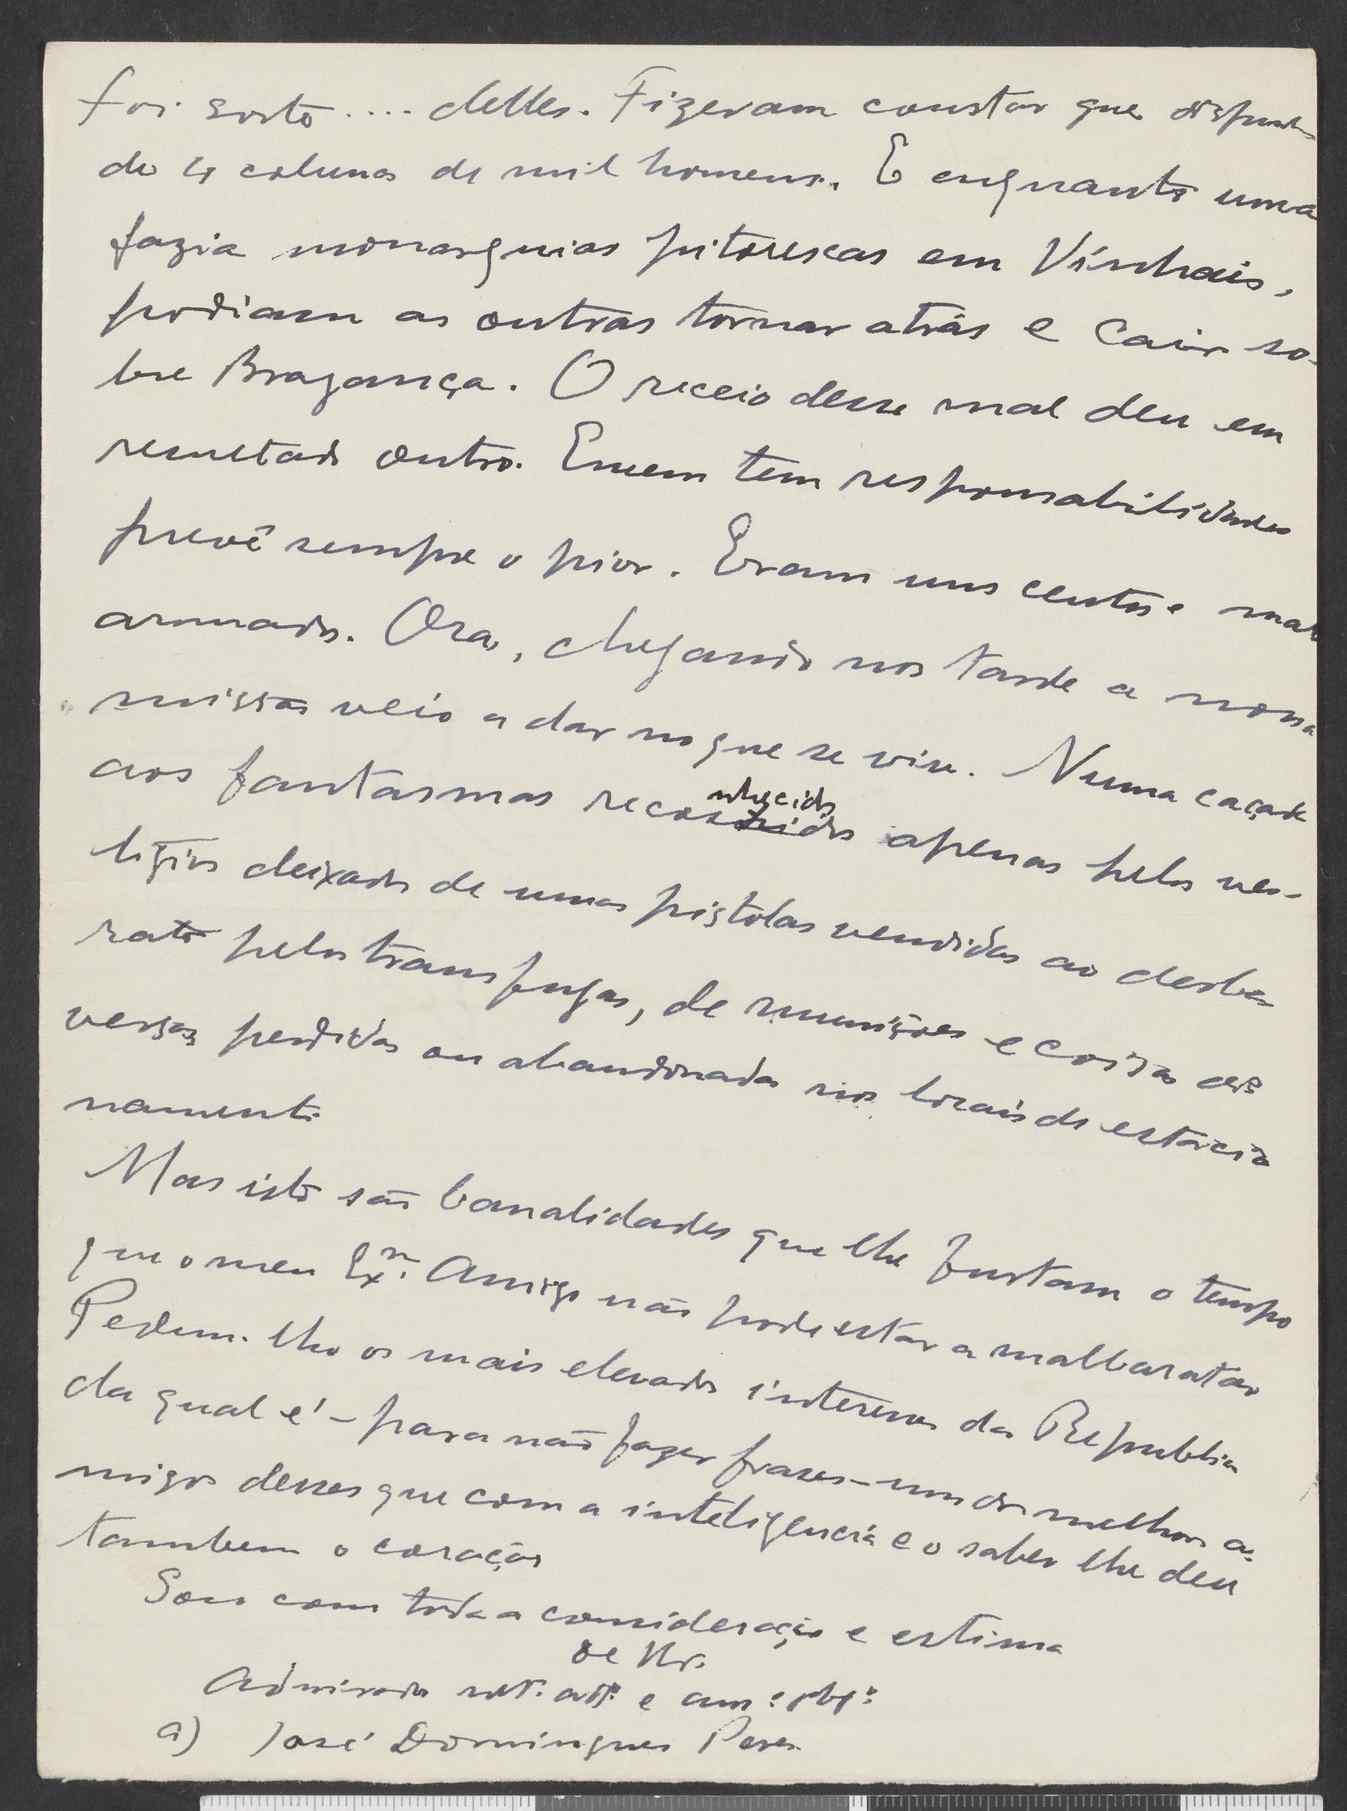 foi sorte .... delles. Fizeram constar que dispunham
de 4 colunas de mil homens. E enquanto uma
fazia monarquias pitorescas em Vinhais,
podiam as outras tornar atrás e cair so-
bre Bragança. O receio desse mal deu em
resultado outro. Quem tem responsabilidades
prevê sempre o pior. Eram uns centos e mal
armados. Ora, chegando nos tarde a nossa
missão veio a dar no que se viu. Numa caçada
aos fantasmas reconhecidos apenas pelos ves-
tigios deixados de umas pistolas vendidas ao desba-
rato pelos transfugas, de munições e coisas di-
versas perdidas ou abandonadas nos locais de estacio
namento.
Mas isto são banalidades que lhe furtam o tempo
que o meu Exmo. Amigo não pode estar a malbaratar
Pedem-lho os mais elevados interesses da Republica
da qual é - para não fazer frases - um dos melhores a-
migos desses que com a inteligencia e o saber lhe deu
tambem o coração
Sou com toda a consideração e estima
de V.
Admirador mto. atto. e amo. obgo.
a) José Domingues Peres